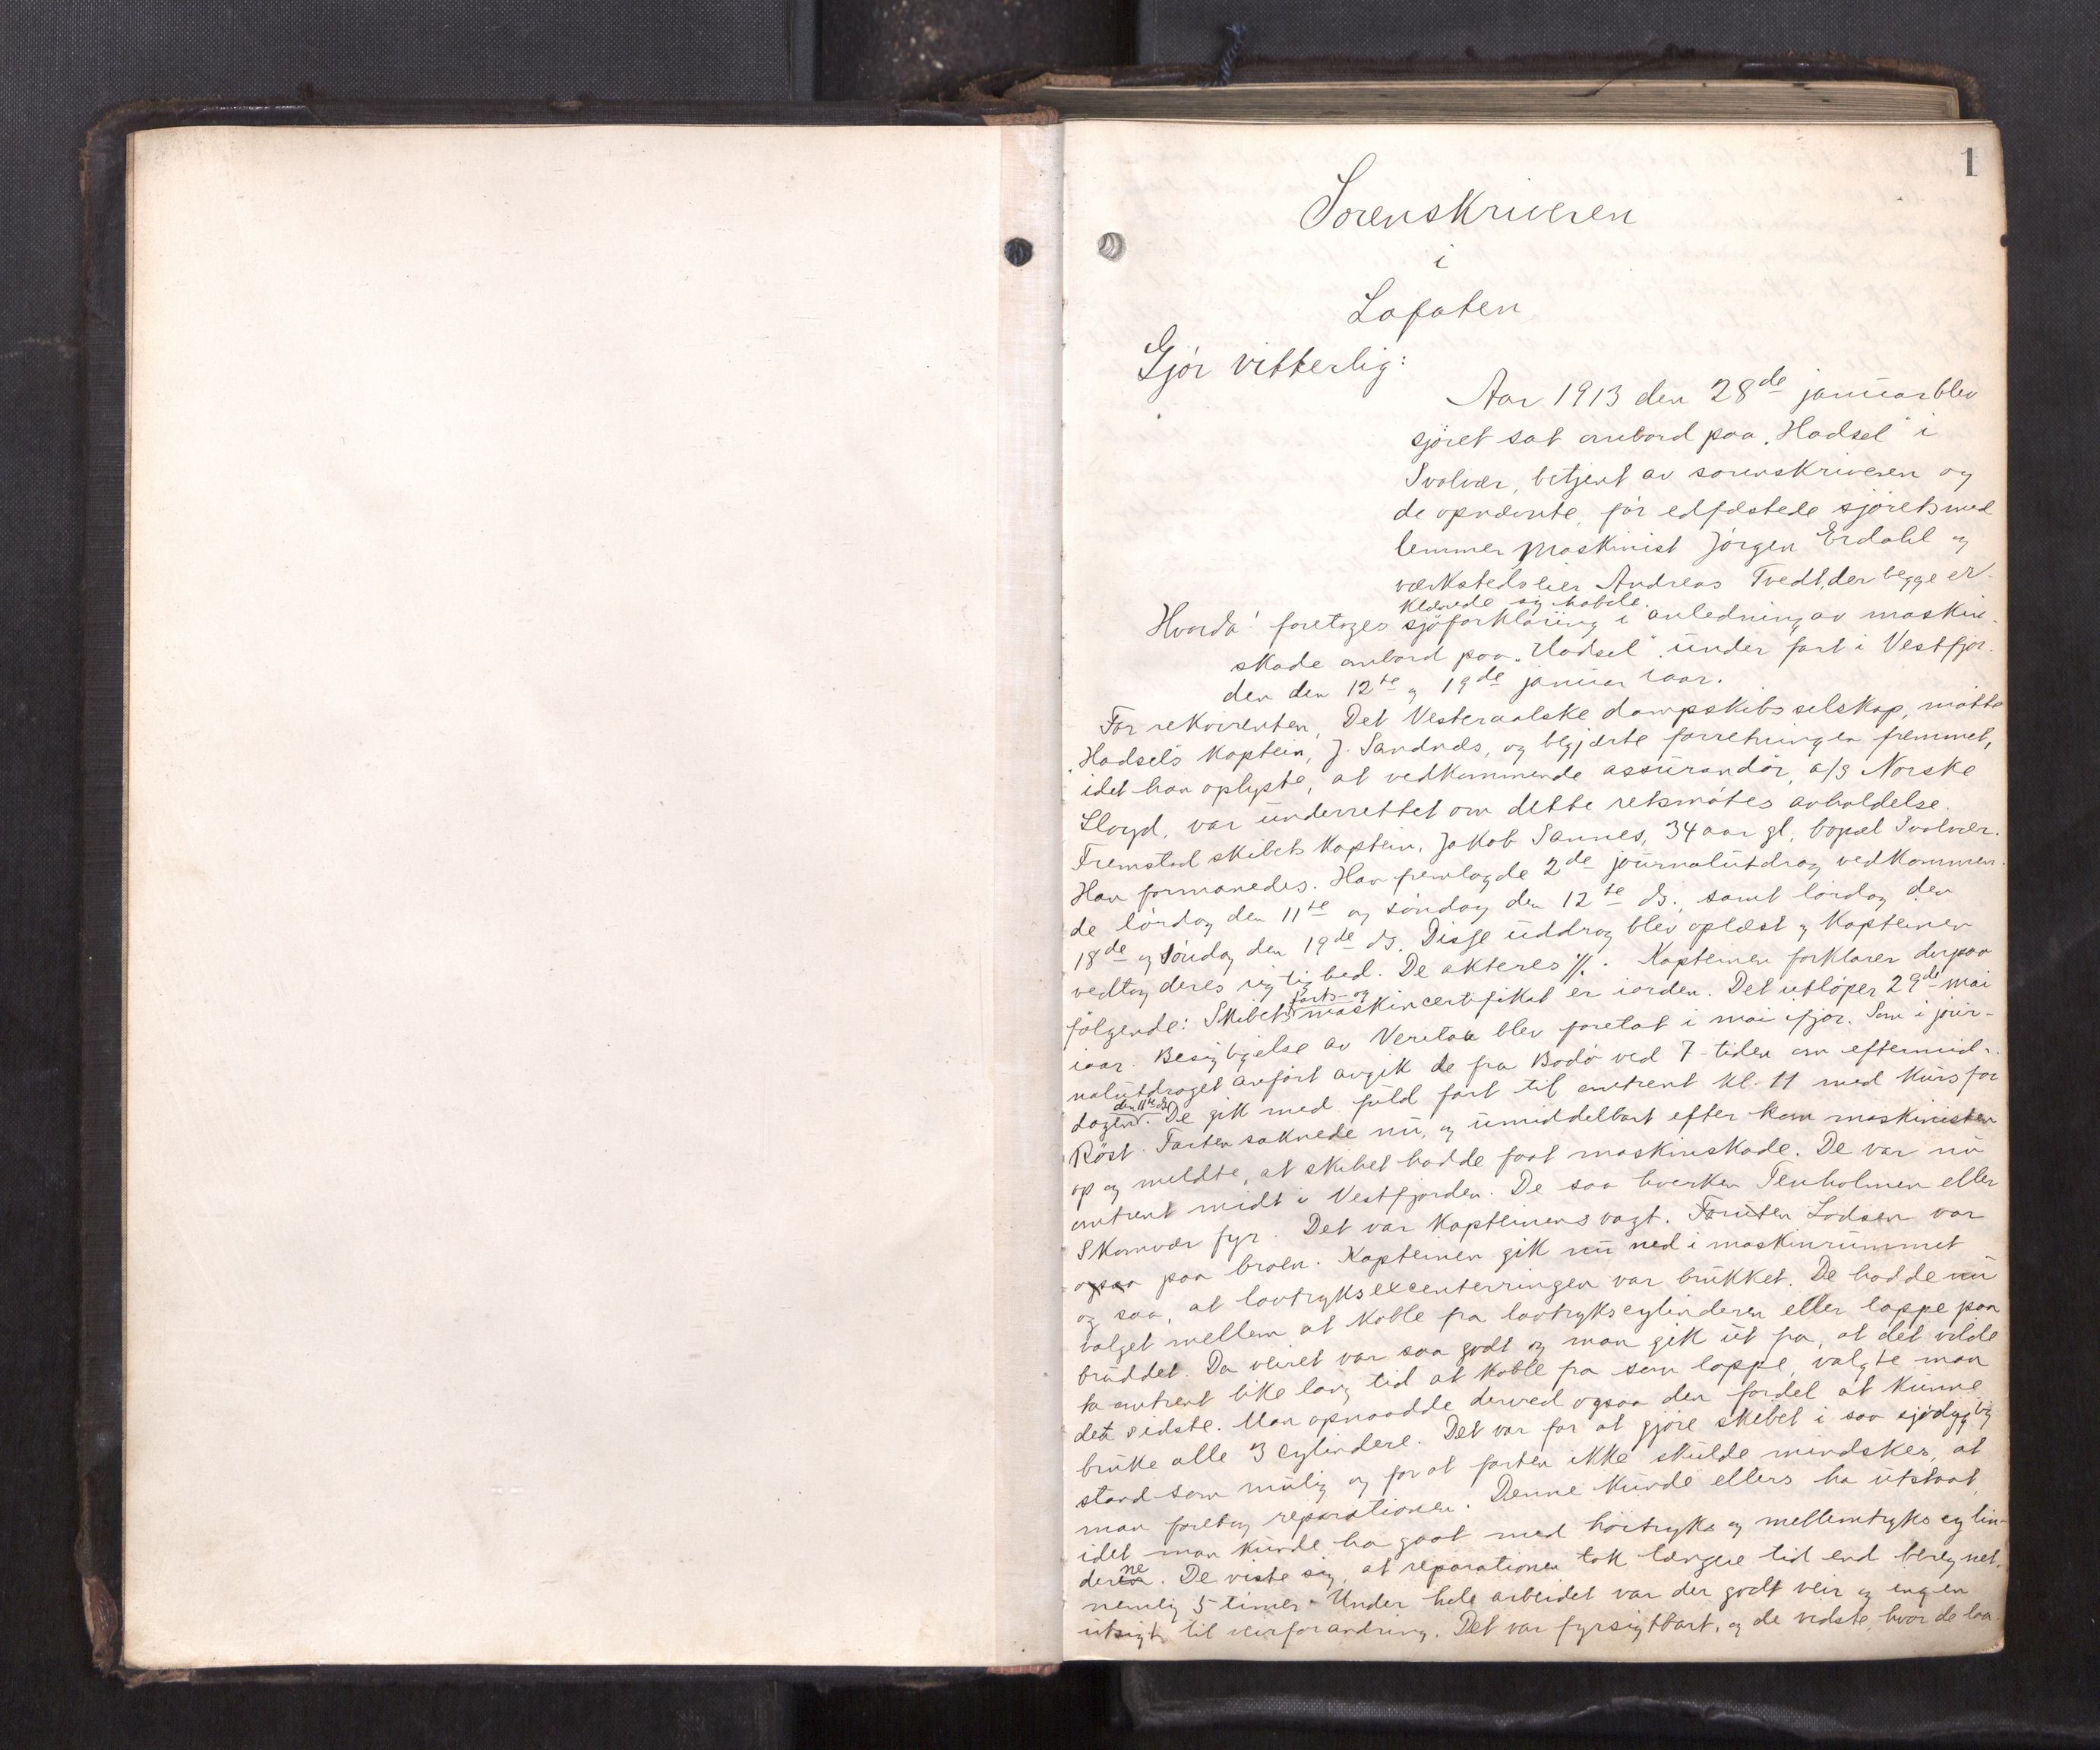 1
Sorenskriveren
i
Lofoten
Gjør vitterlig:
Aar 1913 den 28de januar blev
sjøret sat ombord paa "Hadsel" i
Svolvær, betjent av sorenskriveren og
de opnævnte, før edfæstede sjøretsmed
lemmer maskinist Jørgen Erdahl og
værkstedseier Andreas Tvedt, der begge er-
klærede sig habile.
Hvorda! foretages sjøforklaring i anledning av maskin-
skade ombord paa "Hadsel" under fart i Vestfjor-
den den 12te og 19de januar iaar.
For rekvirenten, Det Vesteraalske dampskibsselskap, møtte
"Hadsel"s kaptein, J. Sandnes, og begjærte forretningen fremmet,
idet han oplyste, at vedkommende assurandør, a/s Norske
Lloyd, var underrettet om dette retsmøtes avholdelse.
Fremstod skibets kaptein, Jakob Sannes, 34 aar gl., bopæl Svolvær.
Han formanedes. Han fremlagde 2de journalutdrag vedkommen-
de lørdag den 11te og søndag den 12te ds., samt lørdag den
18de og søndag den 19de ds. Disse uddrag blev oplæst og kapteinen
vedtog deres rigtighed. De akteres ·/. Kapteinen forklarer derpaa
følgende: Skibets farts- og maskincertifikat er iorden. Det utløper 29de mai
iaar. Besigtigelse av Veritas blev foretat i mai ifjor. Som i jour-
nalutdraget anført avgik de fra Bodø ved 7-tiden om eftermid-
dagen den 11te ds. De gik med fuld fart til omtrent kl. 11 med kurs for
Røst. Farten saknede nu, og umiddelbart efter kom maskinisten
op og meldte, at skibet hadde faat maskinskade. De var nu
omtrent midt i Vestfjorden. De saa hverken Tenholmen eller
Skomvær fyr. Det var kapteinens vagt. Foruten Lodsen var
ogsaa paa broen. Kapteinen gik nu ned i maskinrummet
og saa, at lavtryksexcenterringen var brukket. De hadde nu
valget mellem at koble fra lavtrykscylinderen eller lappe paa
bruddet. Da veiret var saa godt og man gik ut fra, at det vilde
ta omtrent like lang tid at koble fra som lappe, valgte man
det sidste. Man opnaadde derved ogsaa den fordel at kunne
bruke alle 3 cylindere. Det var for at gjøre skibet i saa sjødygtig
stand som mulig og for at farten ikke skulde mindskes, at
man foretog reparationen. Denne kunde ellers ha utstaat,
idet man kunde ha gaat med høitryks og mellemtryks cylin-
derne. De viste sig, at reparationen tok længere tid end beregnet,
nemlig 5 timer. Under hele arbeidet var der godt veir og ingen
utsigt til veirforandring. Det var fyrsigtbart, og de vidste, hvor de laa.